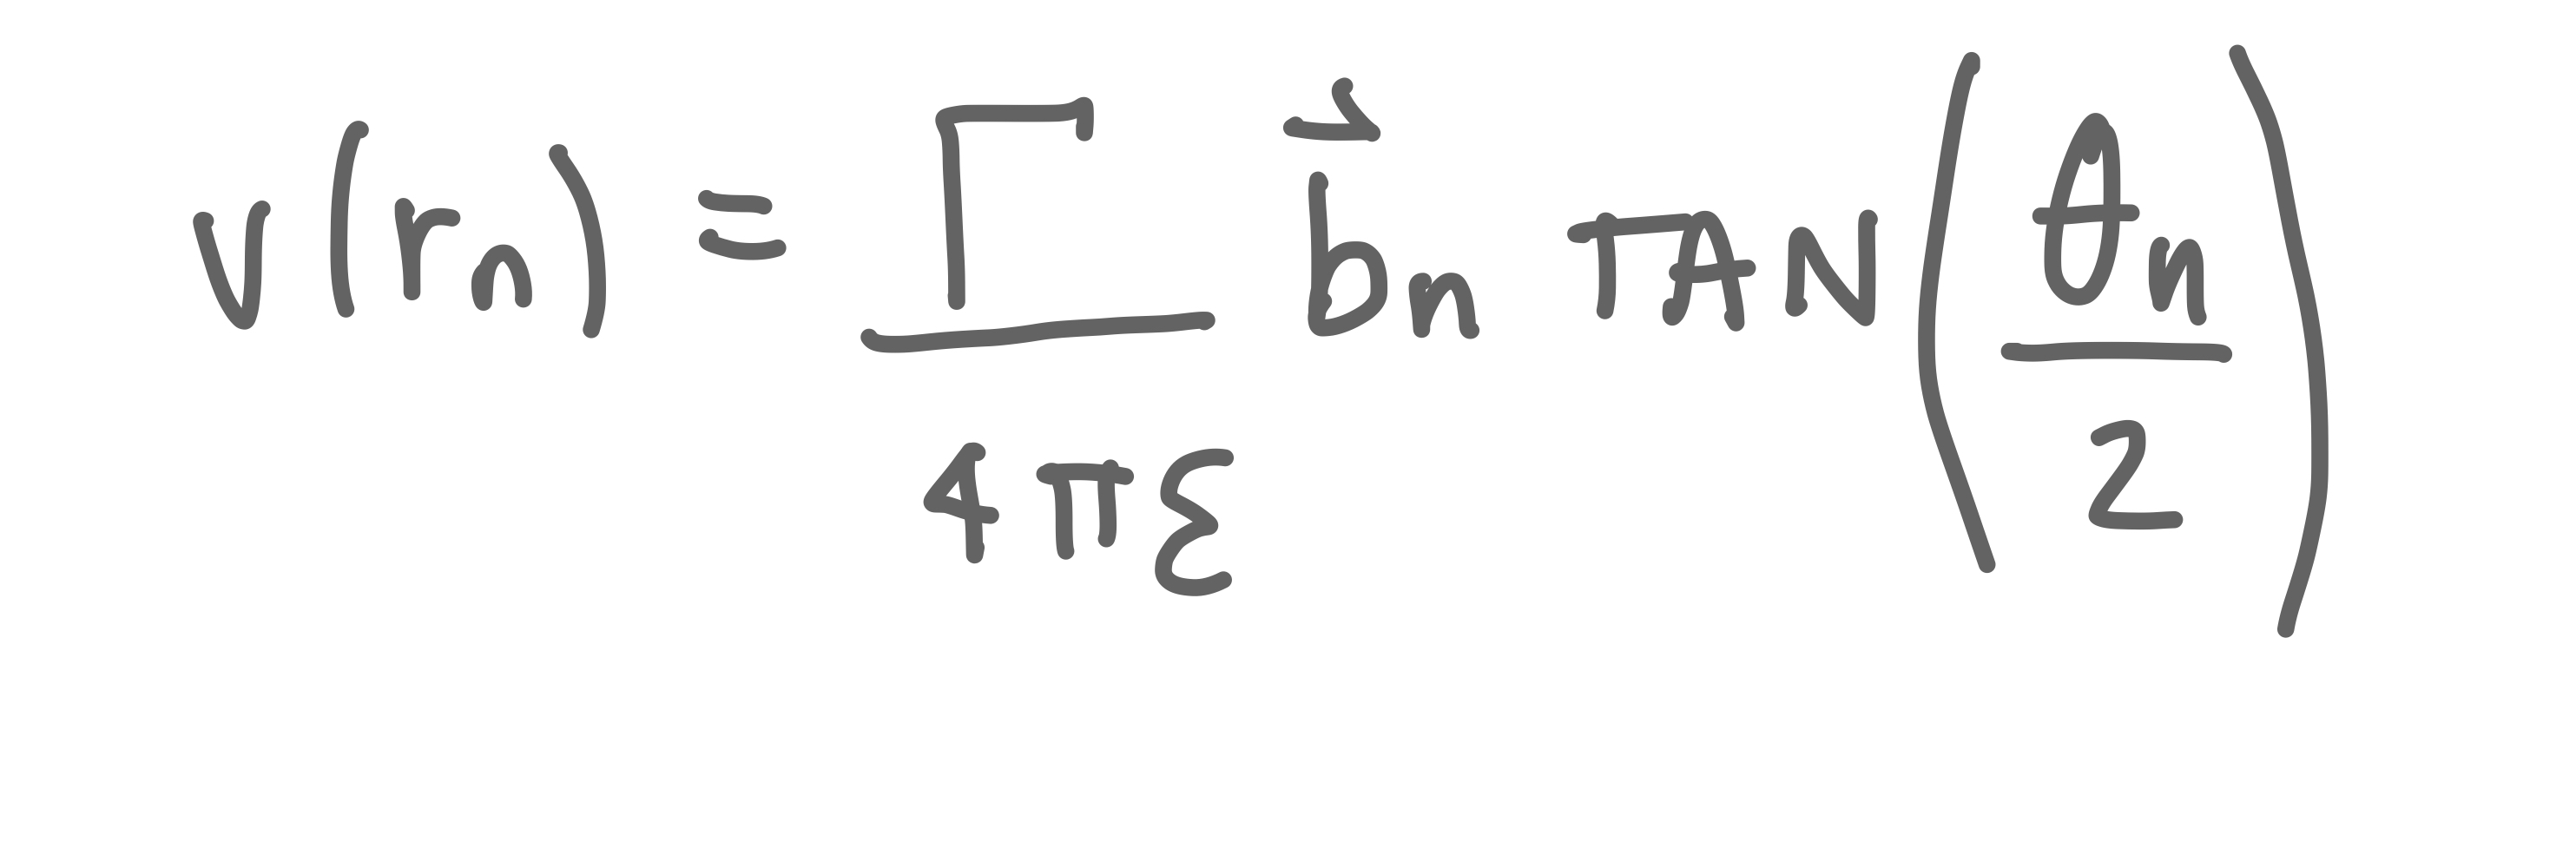 v(rₙ) = Γ/(4πε) b⃗ₙ TAN(θₙ/2)